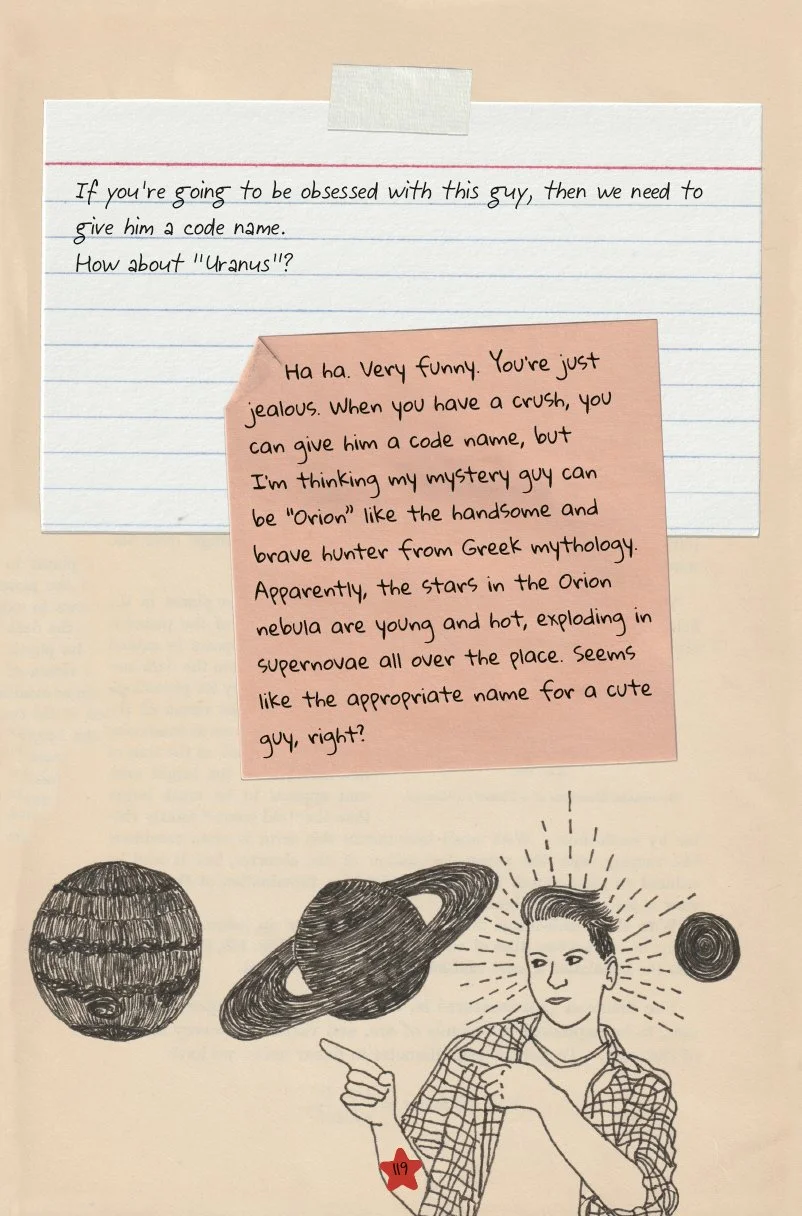 If you're going to be obsessed with this guy, then we need to
give him a code name.
How about "Uranus"?
Ha ha. Very funny. You're just
jealous. When you have a crush, you
can give him a code name, but
I'm thinking my mystery guy can
be "Orion" like the handsome and
brave hunter from Greek mythology.
Apparently, the stars in the Orion
nebula are young and hot, exploding in
supernovae all over the place. Seems
like the appropriate name for a cute
guy, right?
119